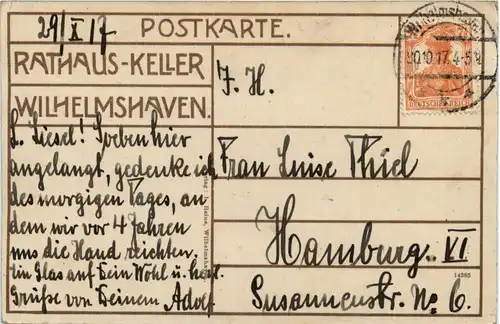 29/X 17
POSTKARTE.
RATHAUS-KELLER
WILHELMSHAVEN.
L. Liesel! Soeben hier
angelangt, gedenke ich
des morgigen Tages, an
dem wir vor 4 Jahren
uns die Hand reichten.
Ein Glas auf Dein Wohl u. herzl.
Grüße von Deinem Adolf
Wilhelmshaven
10.17.4-5N
DEUTSCHES REICH
F. H.
Frau Luise Thiel
Hamburg VI
Susannenstr. No 6.
14395